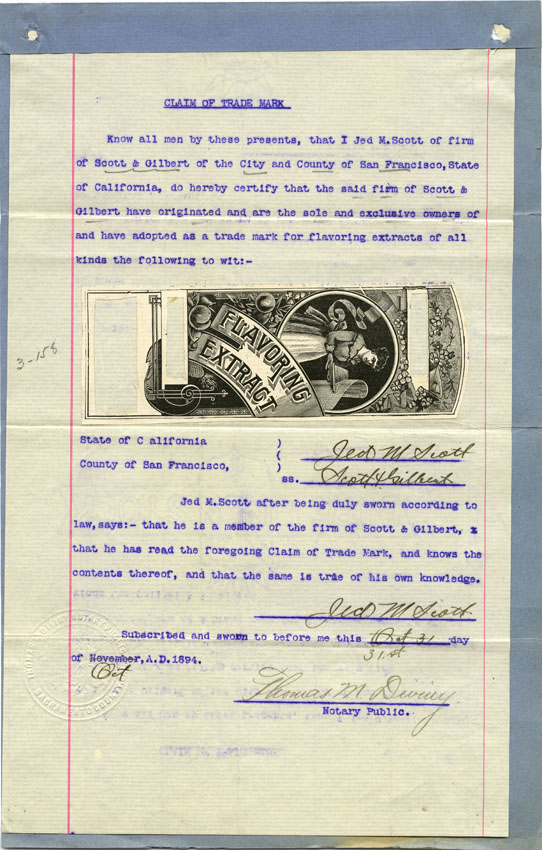 CLAIM OF TRADE MARK
Know all men by these presents, that I Jed M.Scott of firm
of Scott & Gilbert of the City and County of San Francisco,State
of California, do hereby certify that the said firm of Scott &
Gilbert have originated and are the sole and exclusive owners of
and have adopted as a trade mark for flavoring extracts of all
kinds the following to wit:-
3-158
FLAVORING
EXTRACT
State of C alifornia )
( Jed M Scott
County of San Francisco, )
ss. Scott & Gilbert
Jed M.Scott after being duly sworn according to
law,says:- that he is a member of the firm of Scott & Gilbert, x
that he has read the foregoing Claim of Trade Mark, and knows the
contents thereof, and that the same is true of his own knowledge.
Jed M Scott
Subscribed and sworn to before me this Oct 31 day
31st
of November,A.D.1894.
Oct
Thomas M. Diviny
Notary Public.